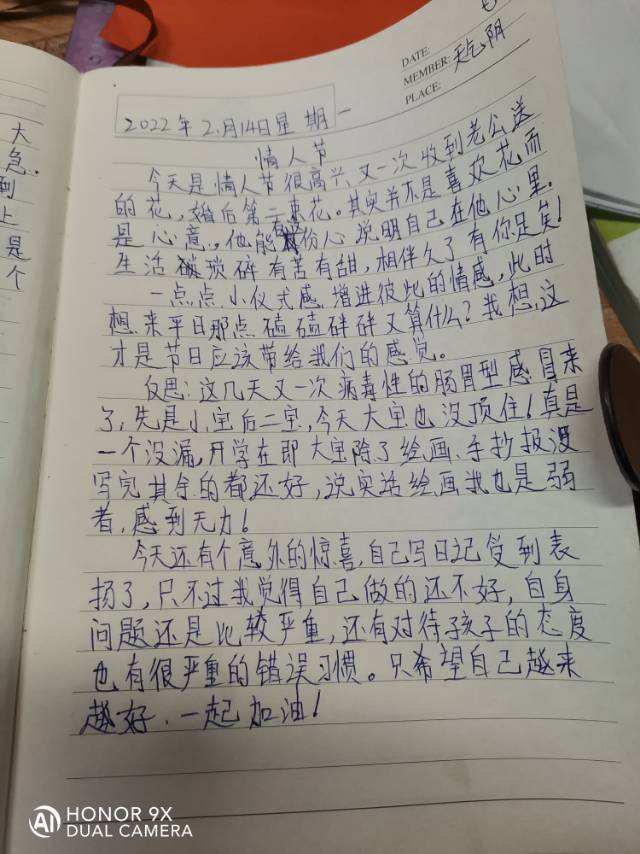 DATE:
MEMBER: 天气阴
PLACE:
2022年2月14日星期一
情人节
今天是情人节很高兴,又一次收到老公送
的花,婚后第二束花。其实并不是喜欢花而
是心意,他能有这份心说明自己在他心里。
生活琐碎有苦有甜,相伴久了有你足矣!
一点点小仪式感增进彼此的情感,此时
想来平日那点磕磕砰砰又算什么?我想这
才是节日应该带给我们的感觉。
反思:这几天又一次病毒性的肠胃型感冒来
了,先是小宝后二宝,今天大宝也没顶住!真是
一个没漏,开学在即大宝除了绘画、手抄报没
写完其余的都还好,说实话绘画我也是弱
者,感到无力!
今天还有个意外的惊喜,自己写日记受到表
扬了,只不过我觉得自己做的还不好,自身
问题还是比较严重,还有对待孩子的态度
也有很严重的错误习惯。只希望自己越来
越好,一起加油!
大
急.
到
上
是
个
HONOR 9X
DUAL CAMERA